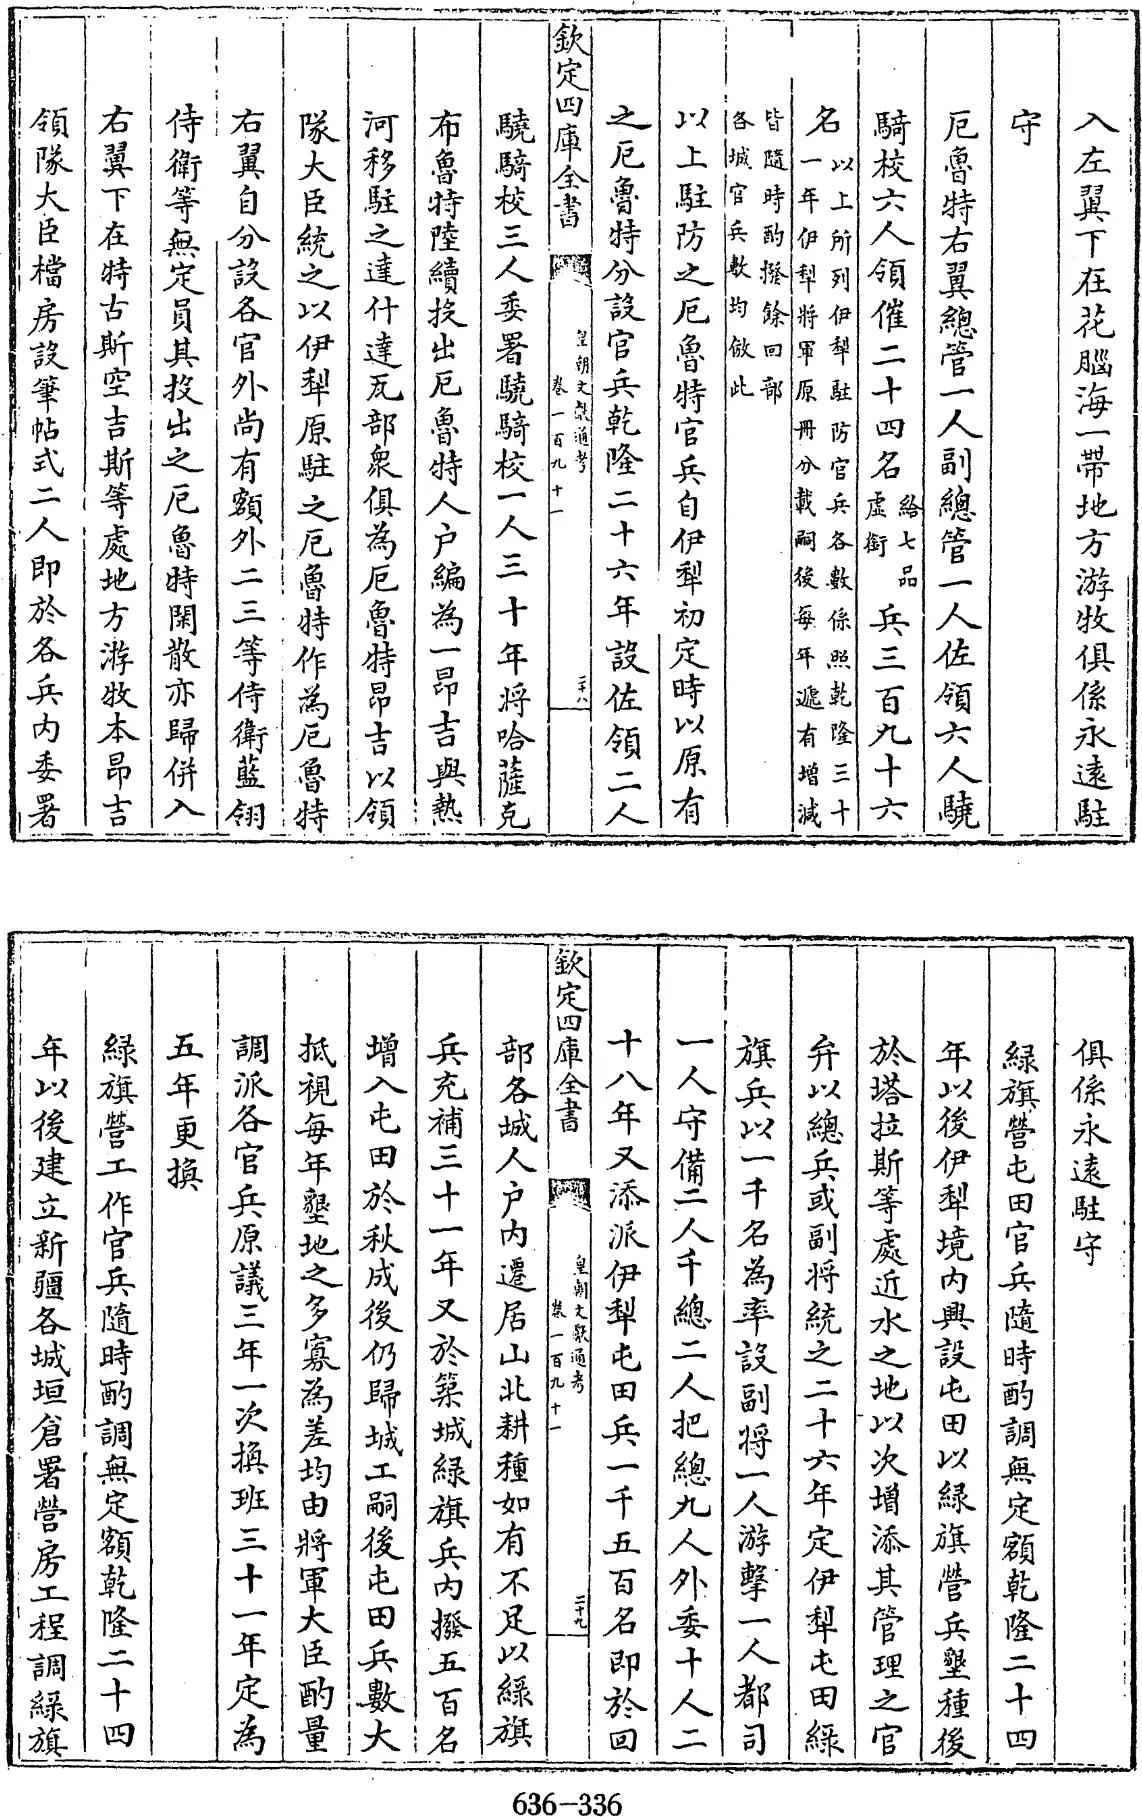 入左翼下在花腦海一帶地方游牧俱係永遠駐
守
厄魯特右翼總管一人副總管一人佐領六人驍
騎校六人領催二十四名給七品虛銜兵三百九十六
名以上所列伊犂駐防官兵各數係照乾隆三十
一年伊犂將軍原冊分載嗣後每年遞有增減
皆隨時酌撥餘回部
各城官兵數均倣此
以上駐防之厄魯特官兵自伊犂初定時以原有
之厄魯特分設官兵乾隆二十六年設佐領二人
欽定四庫全書
皇朝文獻通考
卷一百九十一
二十八
驍騎校三人委署驍騎校一人三十年將哈薩克
布魯特陸續投出厄魯特人户編為一昂吉與熱
河移駐之達什達瓦部衆俱為厄魯特昂吉以領
隊大臣統之以伊犂原駐之厄魯特作為厄魯特
右翼自分設各官外尚有額外二三等侍衛藍翎
侍衛等無定員其投出之厄魯特閑散亦歸併入
右翼下在特古斯空吉斯等處地方游牧本昂吉
領隊大臣檔房設筆帖式二人即於各兵内委署
俱係永遠駐守
緑旗營屯田官兵隨時酌調無定額乾隆二十四
年以後伊犂境内興設屯田以緑旗營兵墾種後
於塔拉斯等處近水之地以次增添其管理之官
弁以總兵或副將統之二十六年定伊犂屯田緑
旗兵以一千名為率設副將一人游擊一人都司
一人守備二人千總二人把總九人外委十人二
十八年又添派伊犂屯田兵一千五百名即於回
欽定四庫全書
皇朝文獻通考
卷一百九十一
二十九
部各城人户内遷居山北耕種如有不足以緑旗
兵充補三十一年又於築城緑旗兵内撥五百名
增入屯田於秋成後仍歸城工嗣後屯田兵數大
抵視每年墾地之多寡為差均由將軍大臣酌量
調派各官兵原議三年一次換班三十一年定為
五年更換
緑旗營工作官兵隨時酌調無定額乾隆二十四
年以後建立新疆各城垣倉署營房工程調緑旗
636-336